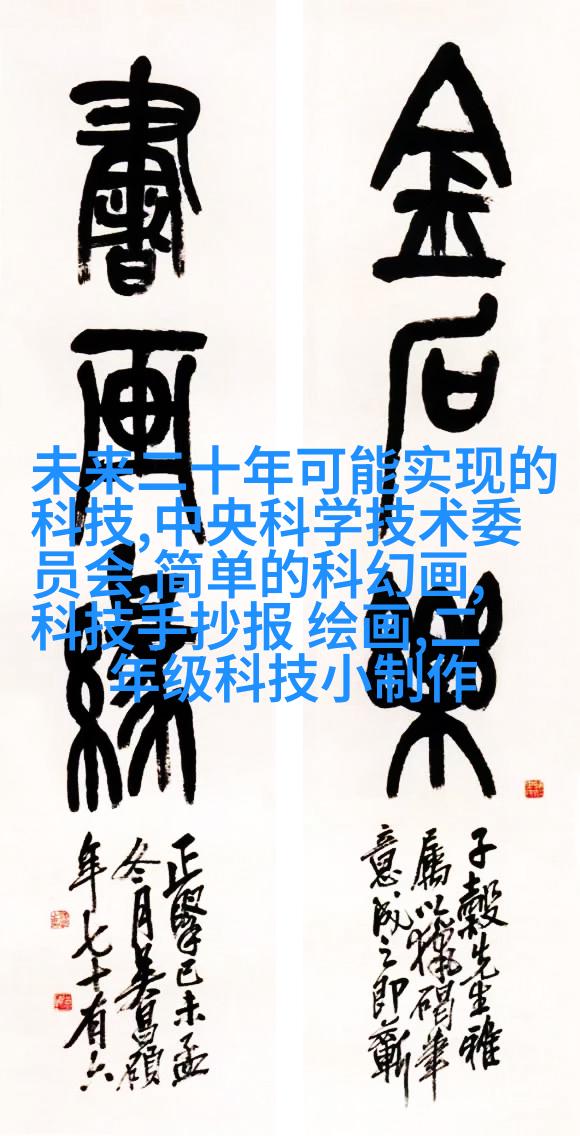 金石樂
子縠先生雅
屬以獵碣筆
意成之即蘄
書画緣
正 己未孟
冬月吴昌碩
年七十有六
未来二十年可能实现的
科技,中央科学技术委
员会,简单的科幻画,
科技手抄报 绘画,二
年级科技小制作